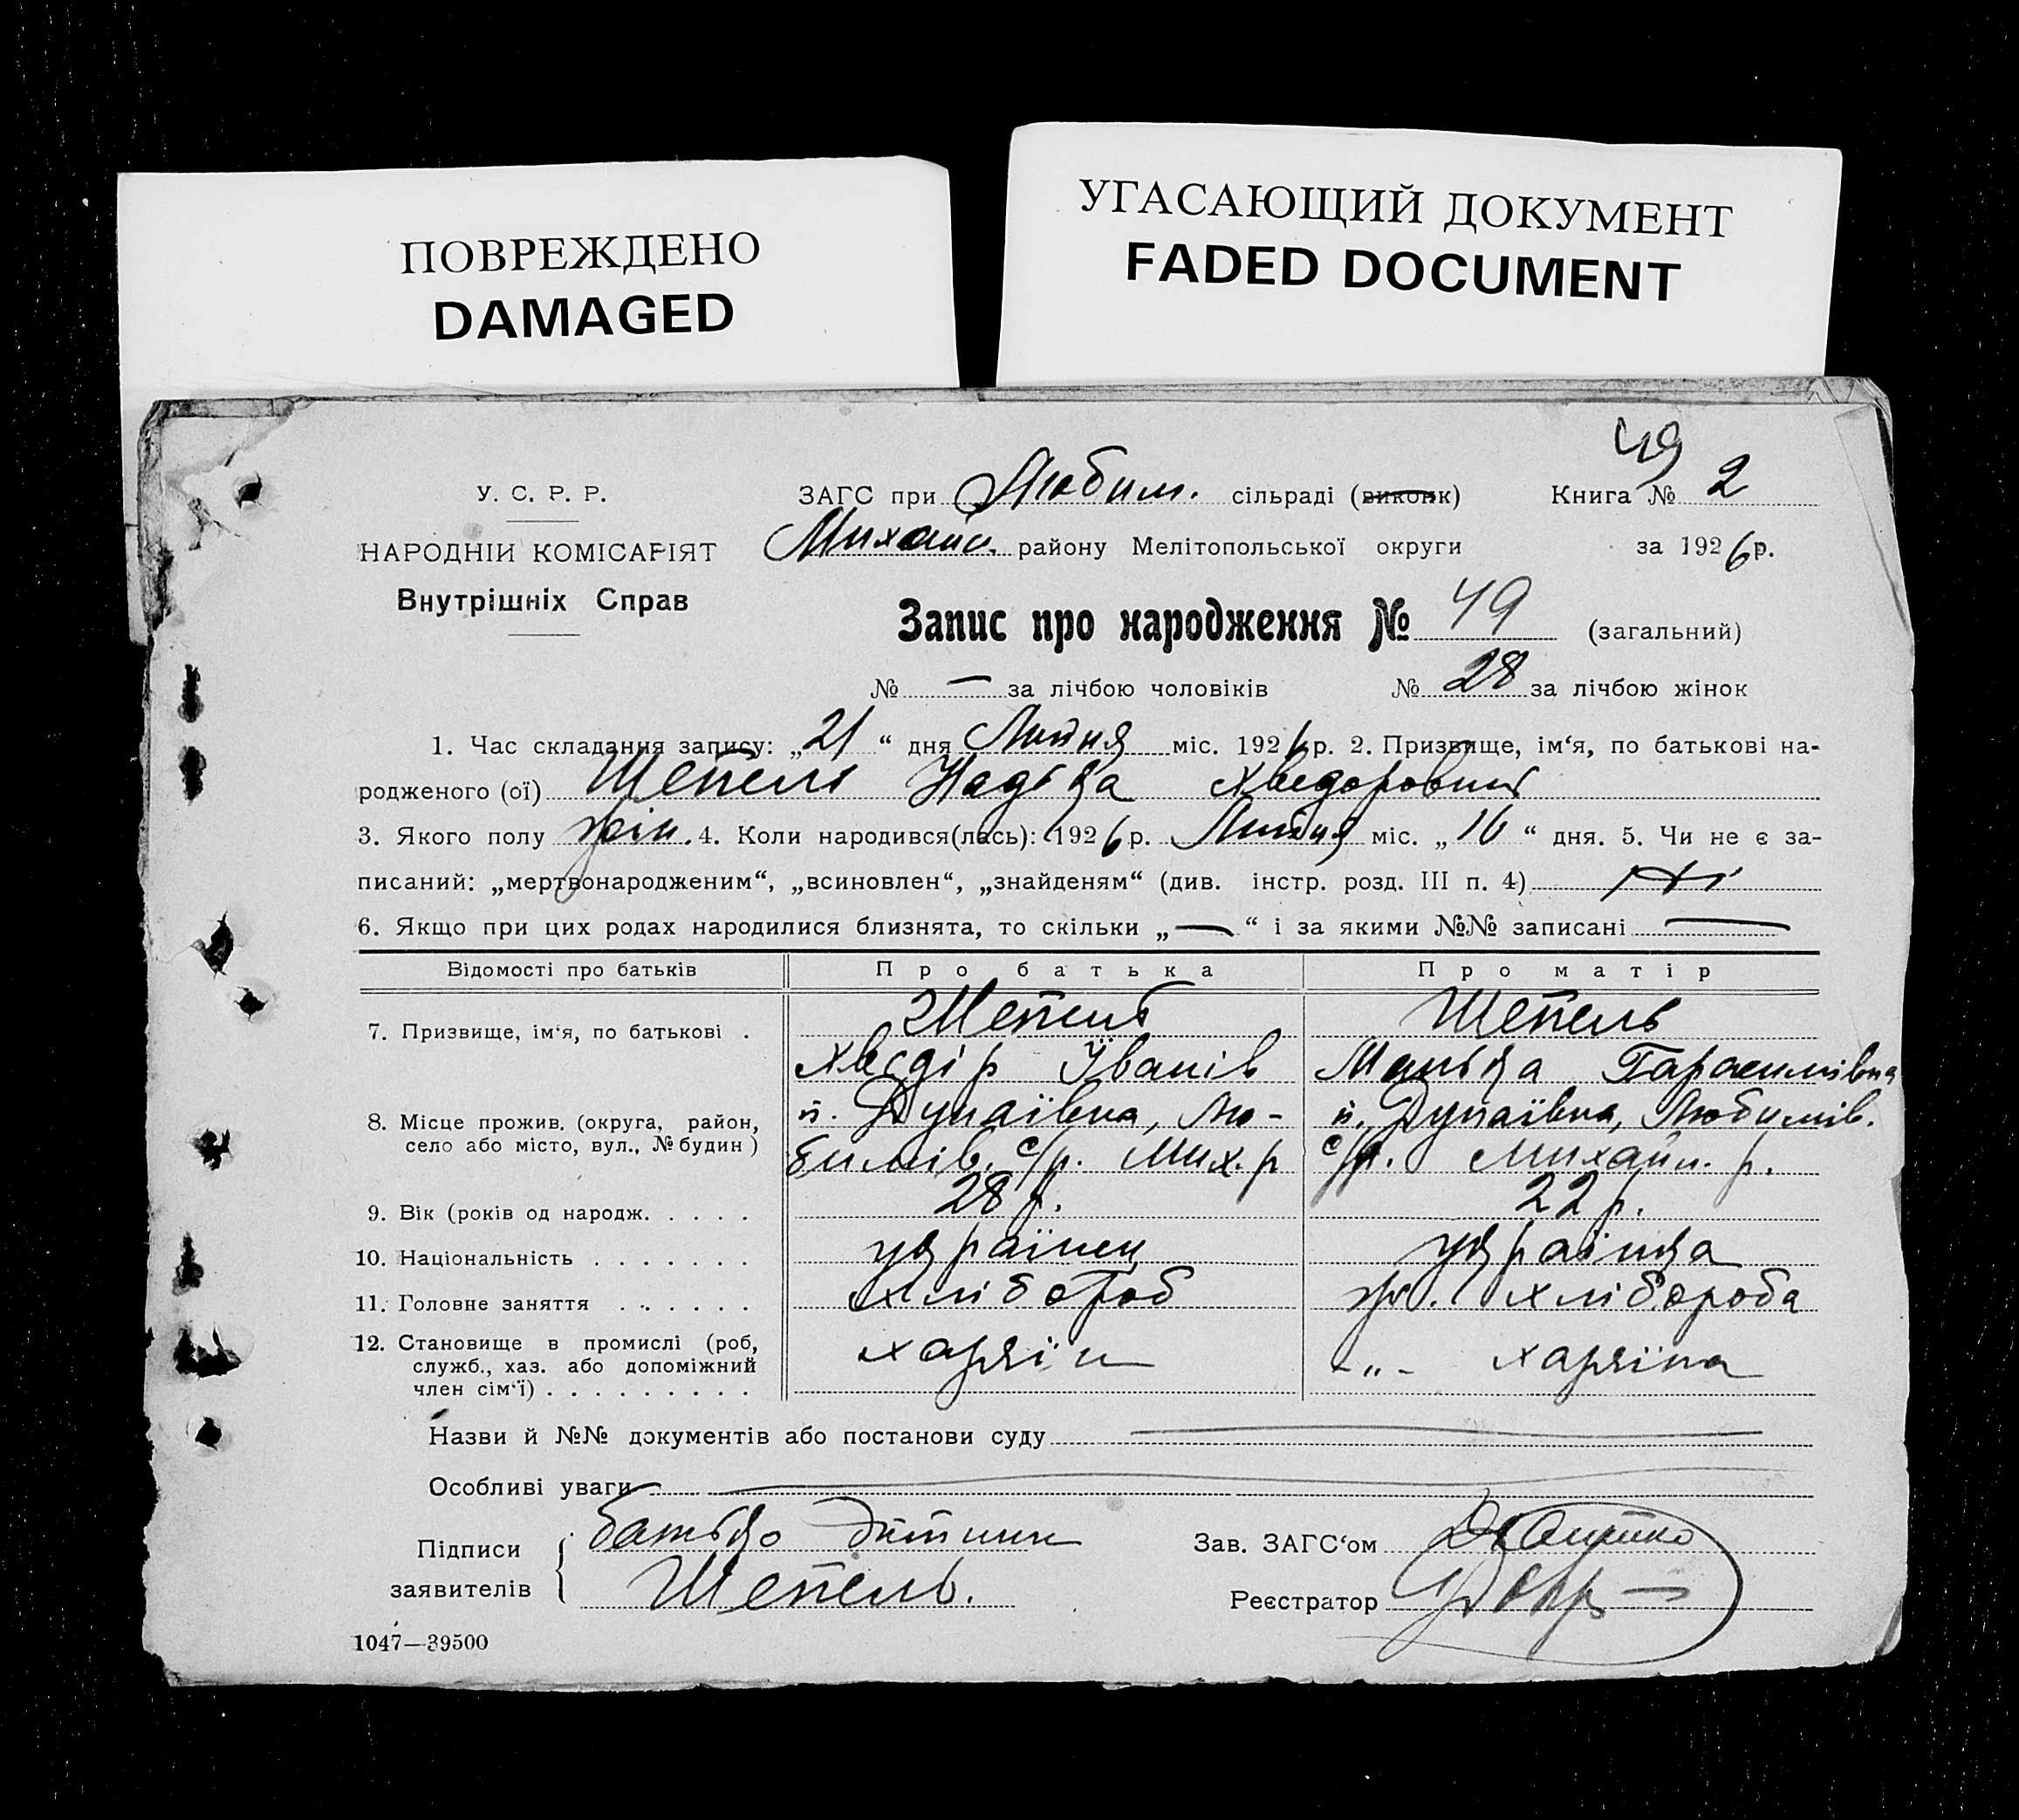 ПОВРЕЖДЕНО
DAMAGED
УГАСАЮЩИЙ ДОКУМЕНТ
FADED DOCUMENT
49
У. С. Р. Р.
НАРОДНІИ КОМІСАРІЯТ
Внутрішніх Справ
ЗАГС при Любим. сільраді (виконк) Книга № 2
Михайл. району Мелітопольської округи за 1926 р.
Запис про народження № 49 (загальний)
№ — за лічбою чоловіків № 28 за лічбою жінок
1. Час складання запису: „21“ дня Липня міс. 1926 р. 2. Призвище, ім‘я, по батькові на-
родженого (ої) Шепель Надька Хведоровна
3. Якого полу жін. 4. Коли народився(лась): 1926 р. Липня міс. „16“ дня. 5. Чи не є за-
писаний: „мертвонародженим“, „всиновлен“, „знайденям“ (див. інстр. розд. III п. 4) Ні
6. Якщо при цих родах народилися близнята, то скільки „—“ і за якими №№ записані —
Відомості про батьків Про батька Про матір
7. Призвище, ім‘я, по батькові . Шепель Шепель
Хведір Іванів Марька Гарасимівна
8. Місце прожив. (округа, район, село або місто, вул., № будин) п. Дунаївка, Лю- п. Дунаївка, Любимів.
бимів. с/р. Мих. р с/р. Михайл. р.
9. Вік (років од народж. . . . . 28 р. 22 р.
10. Національність . . . . . . . українец українка
11. Головне заняття . . . . . . хлібороб ж. хлібороба
12. Становище в промислі (роб, служб., хаз. або допоміжний член сім‘ї) . . . . . . . . . хазяїн -„- хазяїна
Назви й №№ документів або постанови суду —
Особливі уваги —
Підписи заявителів { батько дитини
Шепель.
Зав. ЗАГС‘ом
Реєстратор
1047—39500